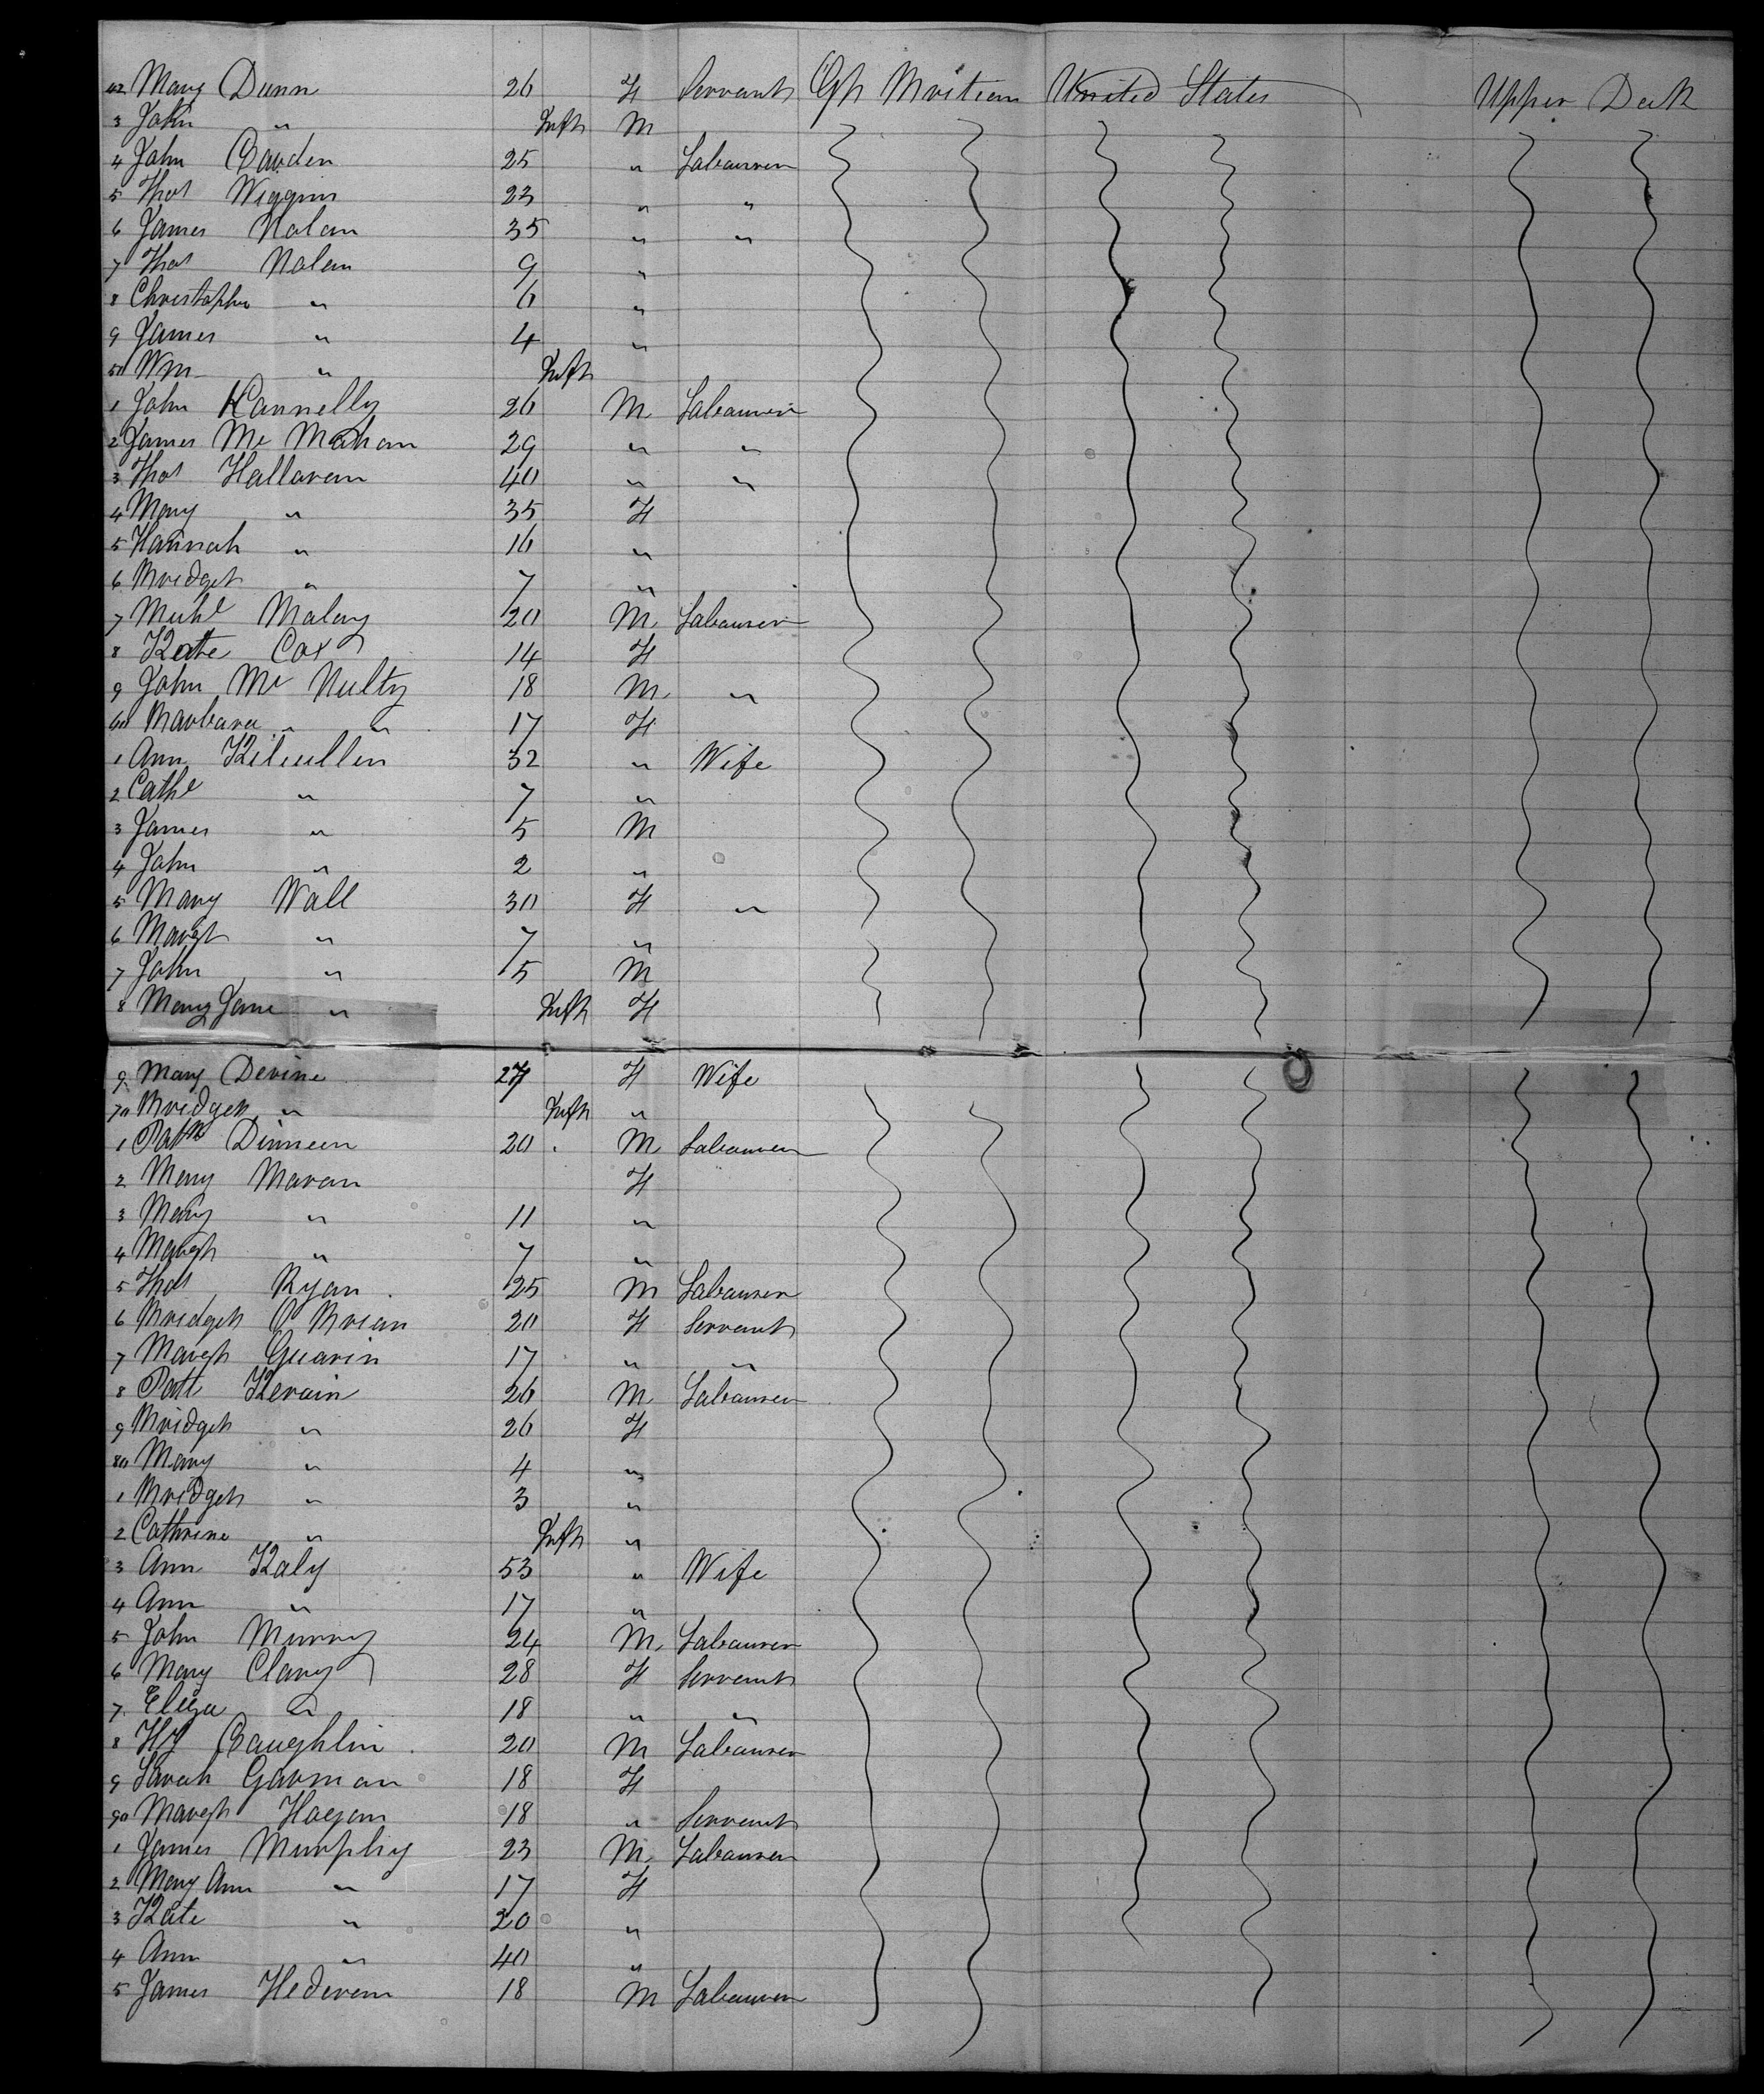 42 Mary Dunn 26 F Servant Gt Britian United States Upper Deck
3 John " Inft M
4 John Bawden 25 " Labourer
5 Thos Wiggins 23 " "
6 James Nolan 35 " "
7 Thos Nolan 9 "
8 Christopher " 6 "
9 James " 4 "
50 Wm " Inft
1 John Kannelly 26 M Labourer
2 James Mc Mahan 29 " "
3 Thos Halloran 40 " "
4 Mary " 35 F
5 Hannah " 16 "
6 Bridget " 7 "
7 Michl Malay 20 M Labourer
8 Kate Cox 14 F
9 John Mc Nulty 18 M "
60 Barbara " " 17 F
1 Ann Kilcullen 32 " Wife
2 Cathe " 7 "
3 James " 5 M
4 John " 2 "
5 Mary Wall 30 F "
6 Margt " 7 "
7 John " 5 M
8 Mary Jane " Inft F
9 Mary Devine 27 F Wife
70 Bridget " Inft "
1 Patk Dinneen 20 M Labourer
2 Mary Maran F
3 Mary " 11 "
4 Margt " 7 "
5 Thos Ryan 25 M Labourer
6 Bridget O Brian 20 F Servant
7 Margt Guarin 17 " "
8 Patt Kerain 26 M Labourer
9 Bridget " 26 F
80 Mary " 4 "
1 Bridget " 3 "
2 Cathrine " Inft "
3 Ann Kaly 53 " Wife
4 Ann " 17 "
5 John Murray 24 M Labourer
6 Mary Clary 28 F Servant
7 Eliza " 18 " "
8 Hy Caughlin 20 M Labourer
9 Sarah Garman 18 F
90 Margt Hagan 18 " Servant
1 James Murphy 23 M Labourer
2 Mary Ann " 17 F
3 Kate " 20 "
4 Ann " 40 "
5 James Hederan 18 M Labourer